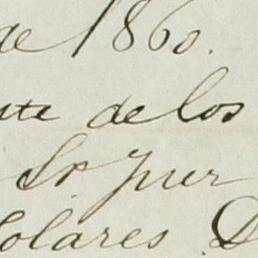 de 1860.
te de los
Sr Juez
olares D